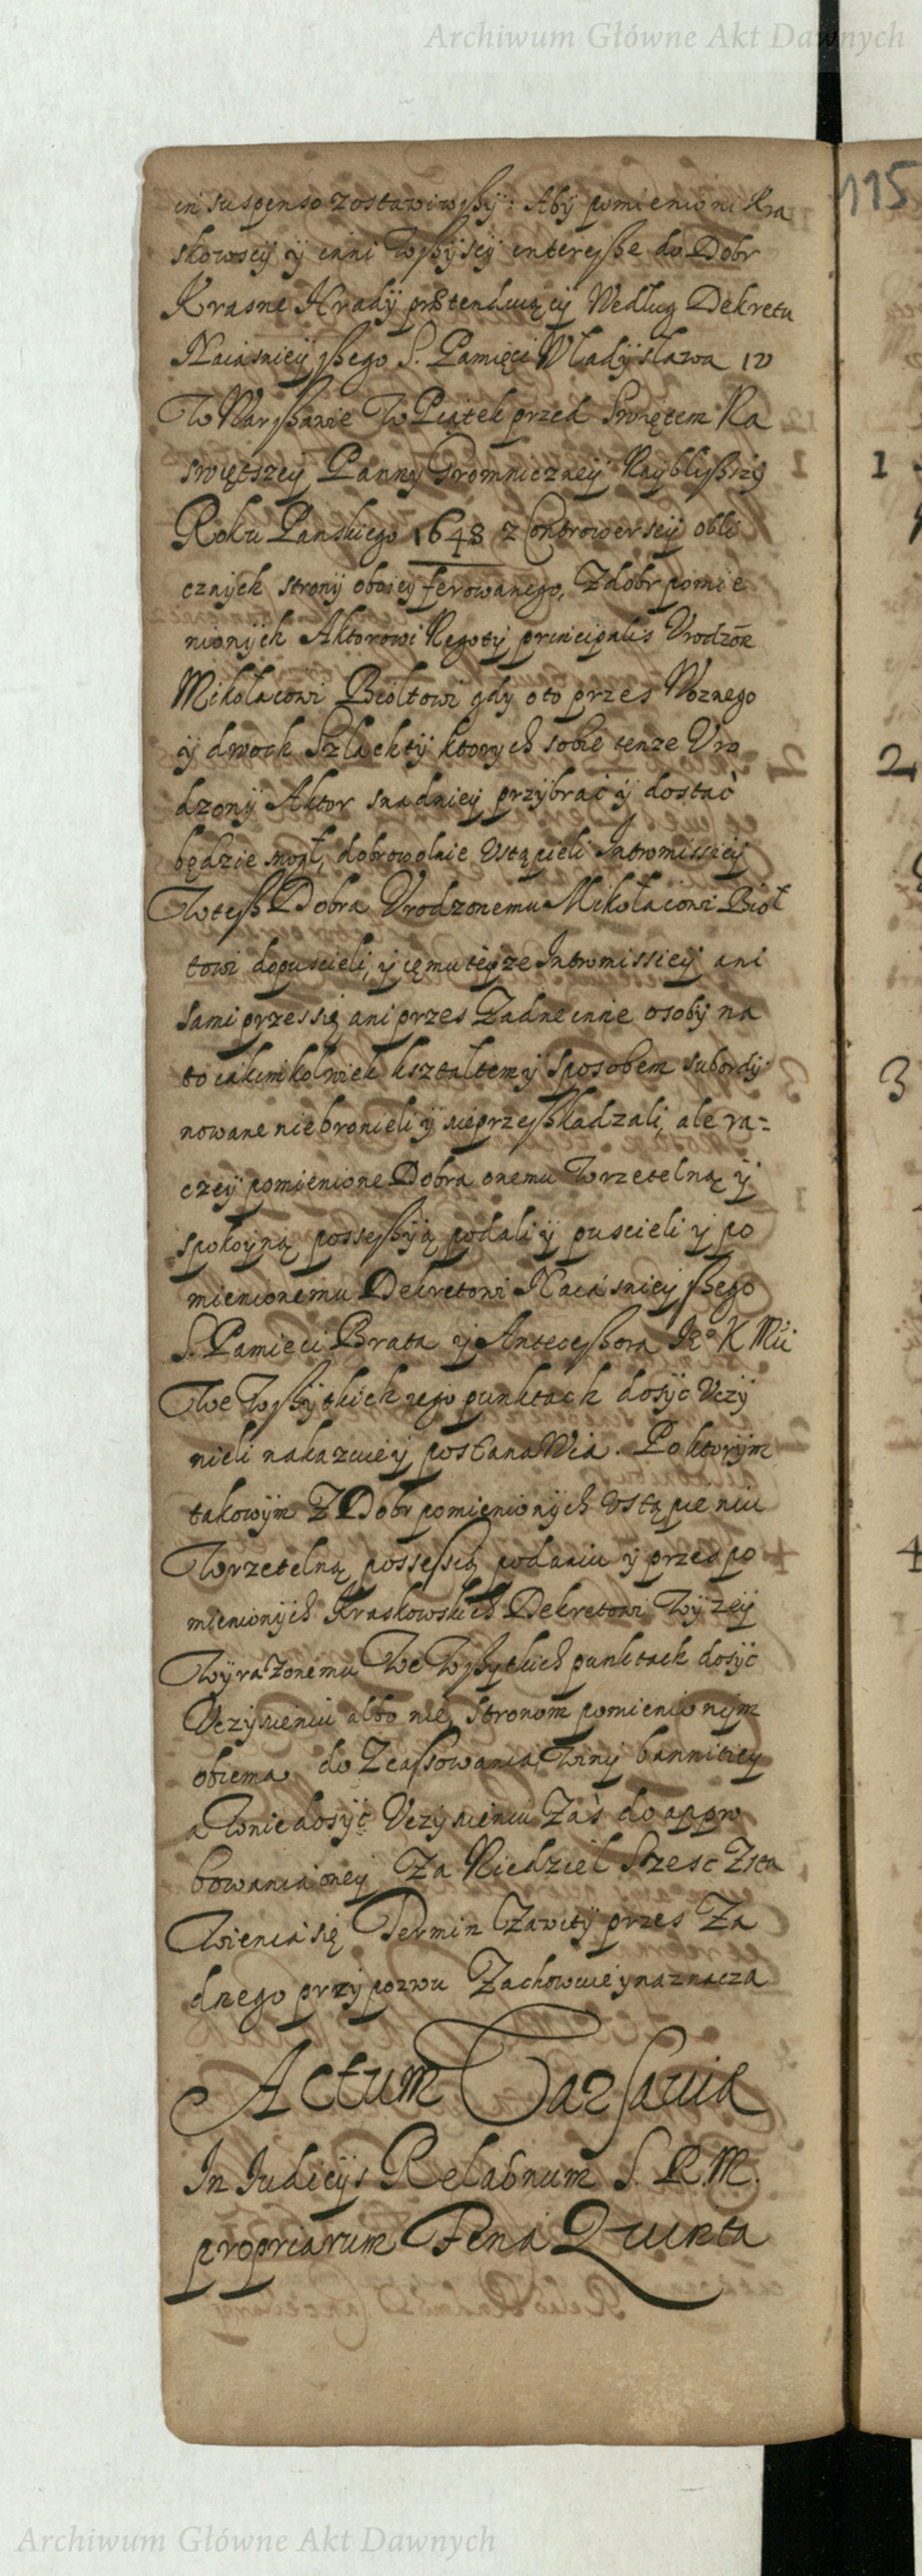 Archiwum Główne Akt Dawnych
115
in suspenso zostawiwszÿ: Abÿ pomienioni Kra
skowscÿ ÿ inni Wszÿscÿ interesse do Dobr
Krasne Hradÿ prætenduiącÿ Według Dekretu
Naiasnieÿszego S. Pamięci Władÿsława IV
W Warszawie W Piątek przed Swiętem Na
swiętszeÿ Pannÿ Gromniczneÿ Naÿbliszszÿ
Roku Panskiego 1648 z Controwersiÿ obli
cznÿch stronÿ oboieÿ ferowanego, Z dobr pomie
nionÿch Aktorowi Negotÿ principalis Vrodzon
Mikołaiowi Biołtowi gdy oto przes Woznego
ÿ dwoch Szlachtÿ ktorych sobie tenze Vro
dzonÿ Aktor snadnieÿ przÿbrać ÿ dostać
będzie mogł, dobrowolnie Vstąpieli Intromissieÿ
W tesz Dobra Vrodzonemu Mikołaiowi Bioł
towi dopuscieli, ÿ iemu teÿze Intromissieÿ ani
sami przes się ani przes Zadne inne osobÿ na
to iakimkolwiek kształtem ÿ sposobem subordÿ
nowane niebronieli ÿ nieprzeszkadzali, ale ra=
czeÿ pomienione Dobra onemu W rzetelną ÿ
spokoÿną possessÿą podali ÿ puscieli ÿ po
mienionemu Dekretowi Naiasnieÿszego
S. Pamieci Brata ÿ Antecessora Je° K Mći
We Wszÿtkich iego punktach dosÿc Vczÿ
nieli nakazuie ÿ postanaWia. Po ktorÿm
takowÿm Z Dobr pomienionÿch Vstąpieniu
W rzetelną possessią podaniu ÿ przes po
mienionÿch Kraskowskich Dekretowi Wÿzeÿ
Wÿrazonemu We Wszÿtkich punktach dosÿć
Vczÿnieniu albo nie, Stronom pomienionÿm
obiema do Zcassowania Winÿ bannitieÿ
a W niedosÿć Vczÿnieniu Zaś do appro
bowania oneÿ Za Niedziel Szesc Zsta
Wienia się Termin Zawitÿ przes Za
dnego przÿpozwu Zachowuie ÿ naznacza
Actum Varsaviæ
In Iudicÿs Relaonum S. R. M.
propriarum Feria Quinta
1
2
3
4
Archiwum Główne Akt Dawnych